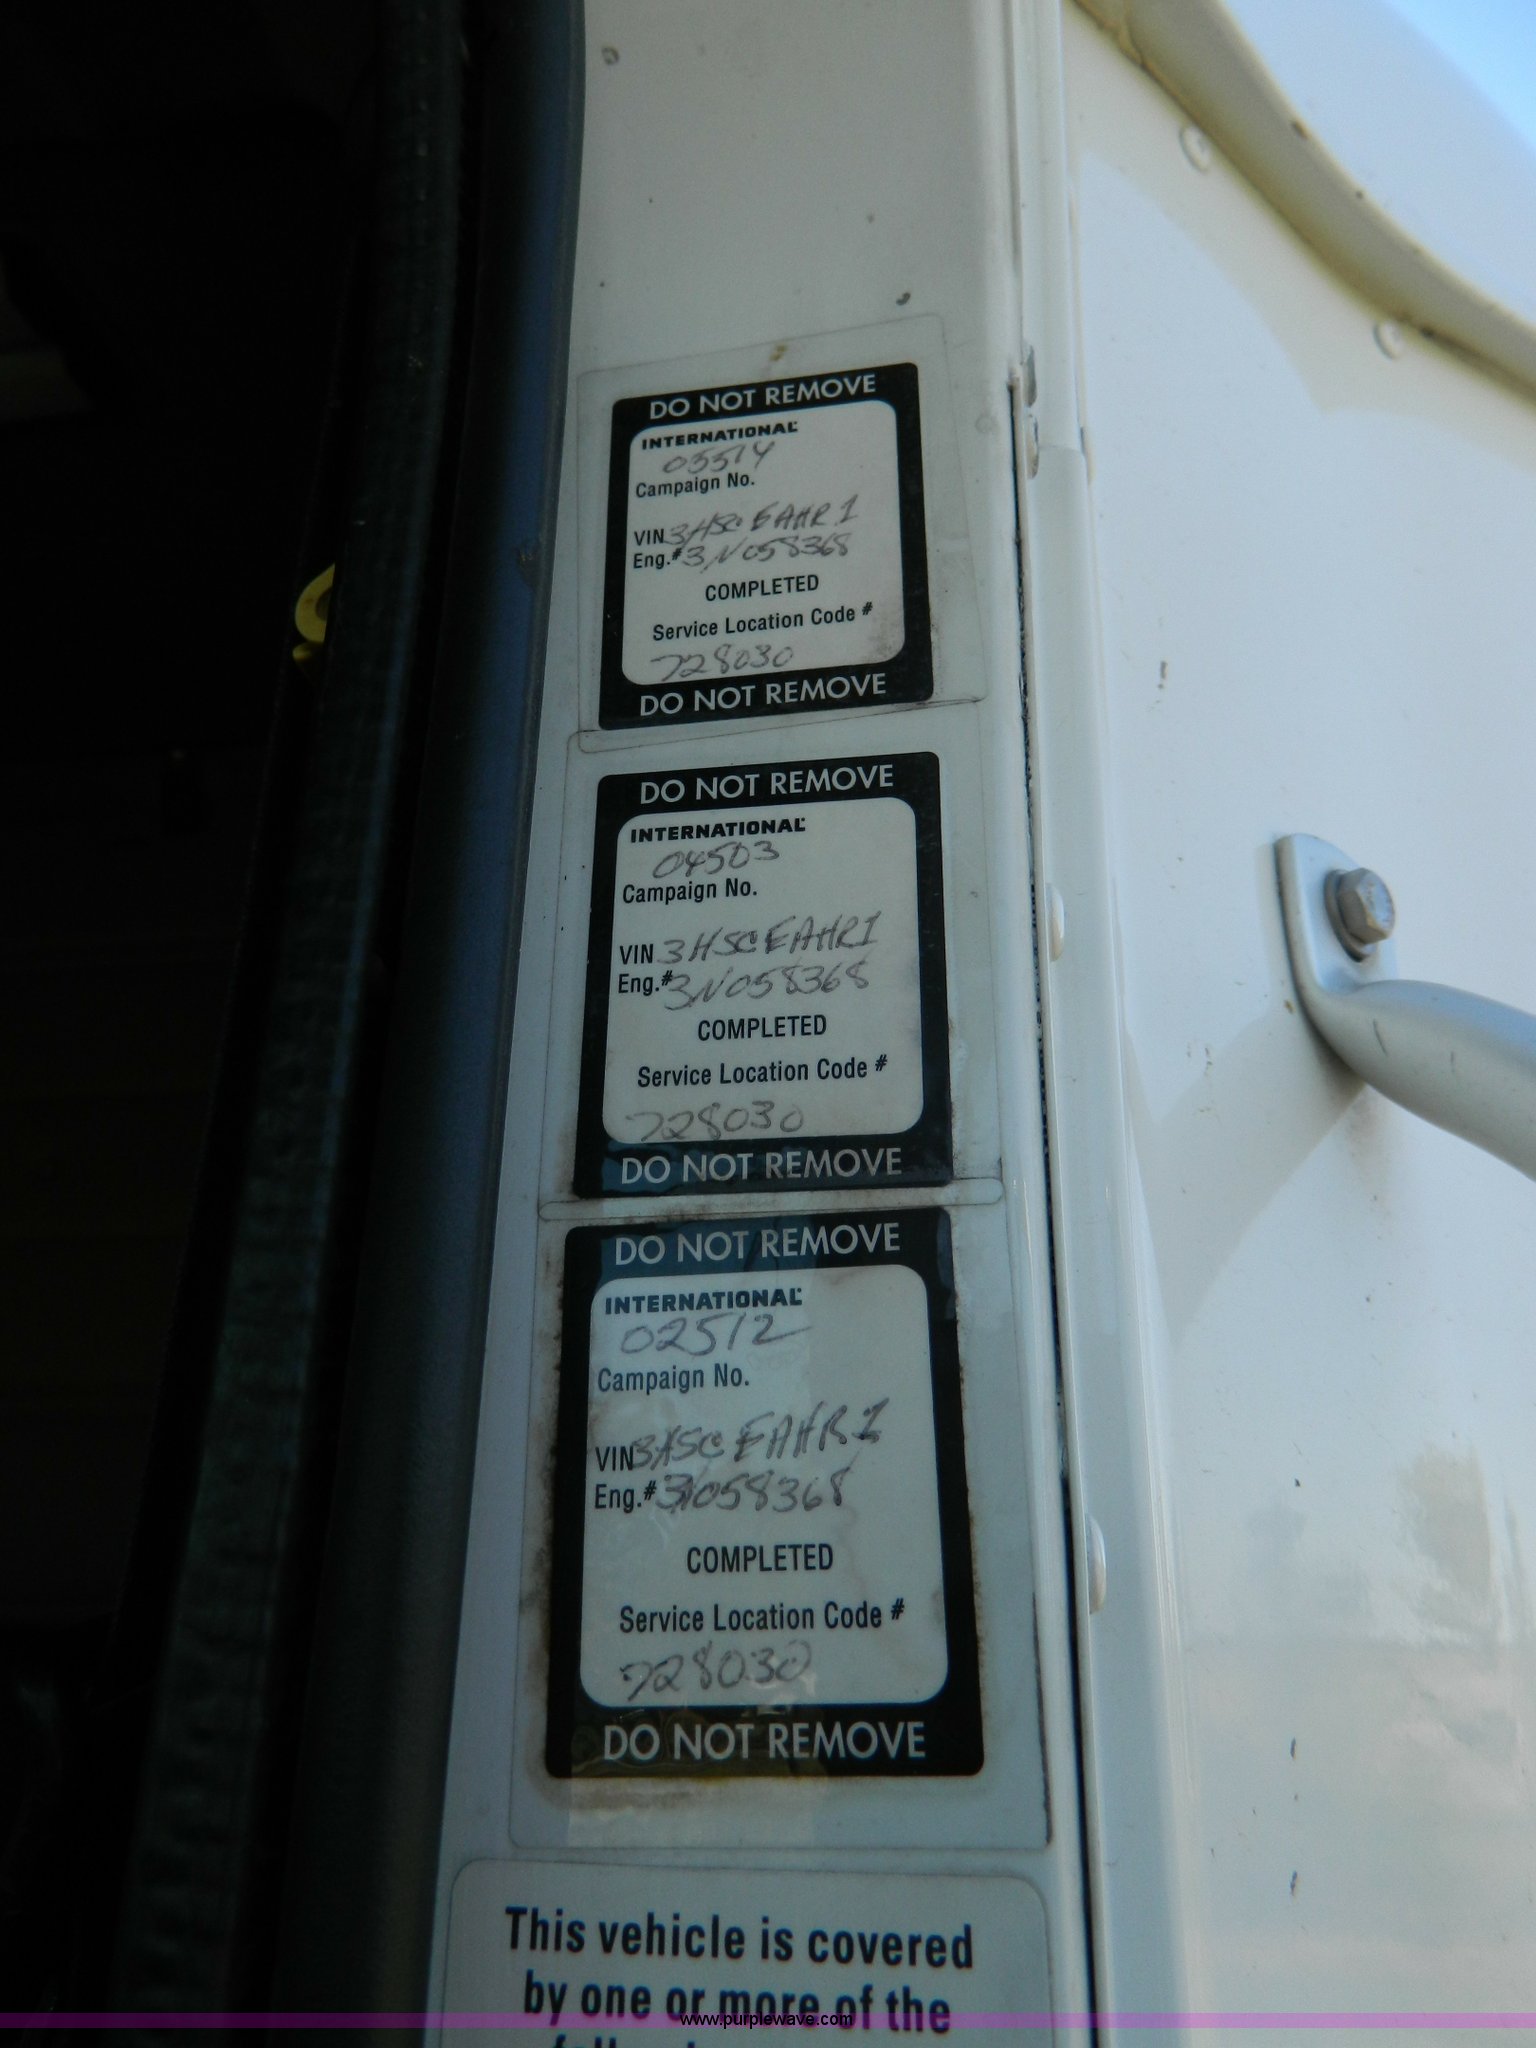 DO NOT REMOVE
INTERNATIONAL
03514
Campaign No.
VIN 3HSCEAHR1
Eng.# 3N058368
COMPLETED
Service Location Code #
728030
DO NOT REMOVE
DO NOT REMOVE
INTERNATIONAL
04503
Campaign No.
VIN 3HSCEAHR1
Eng.# 3N058368
COMPLETED
Service Location Code #
728030
DO NOT REMOVE
DO NOT REMOVE
INTERNATIONAL
02512
Campaign No.
VIN 3HSCEAHR1
Eng.# 3N058368
COMPLETED
Service Location Code #
728030
DO NOT REMOVE
This vehicle is covered
by one or more of the
www.purplewave.com